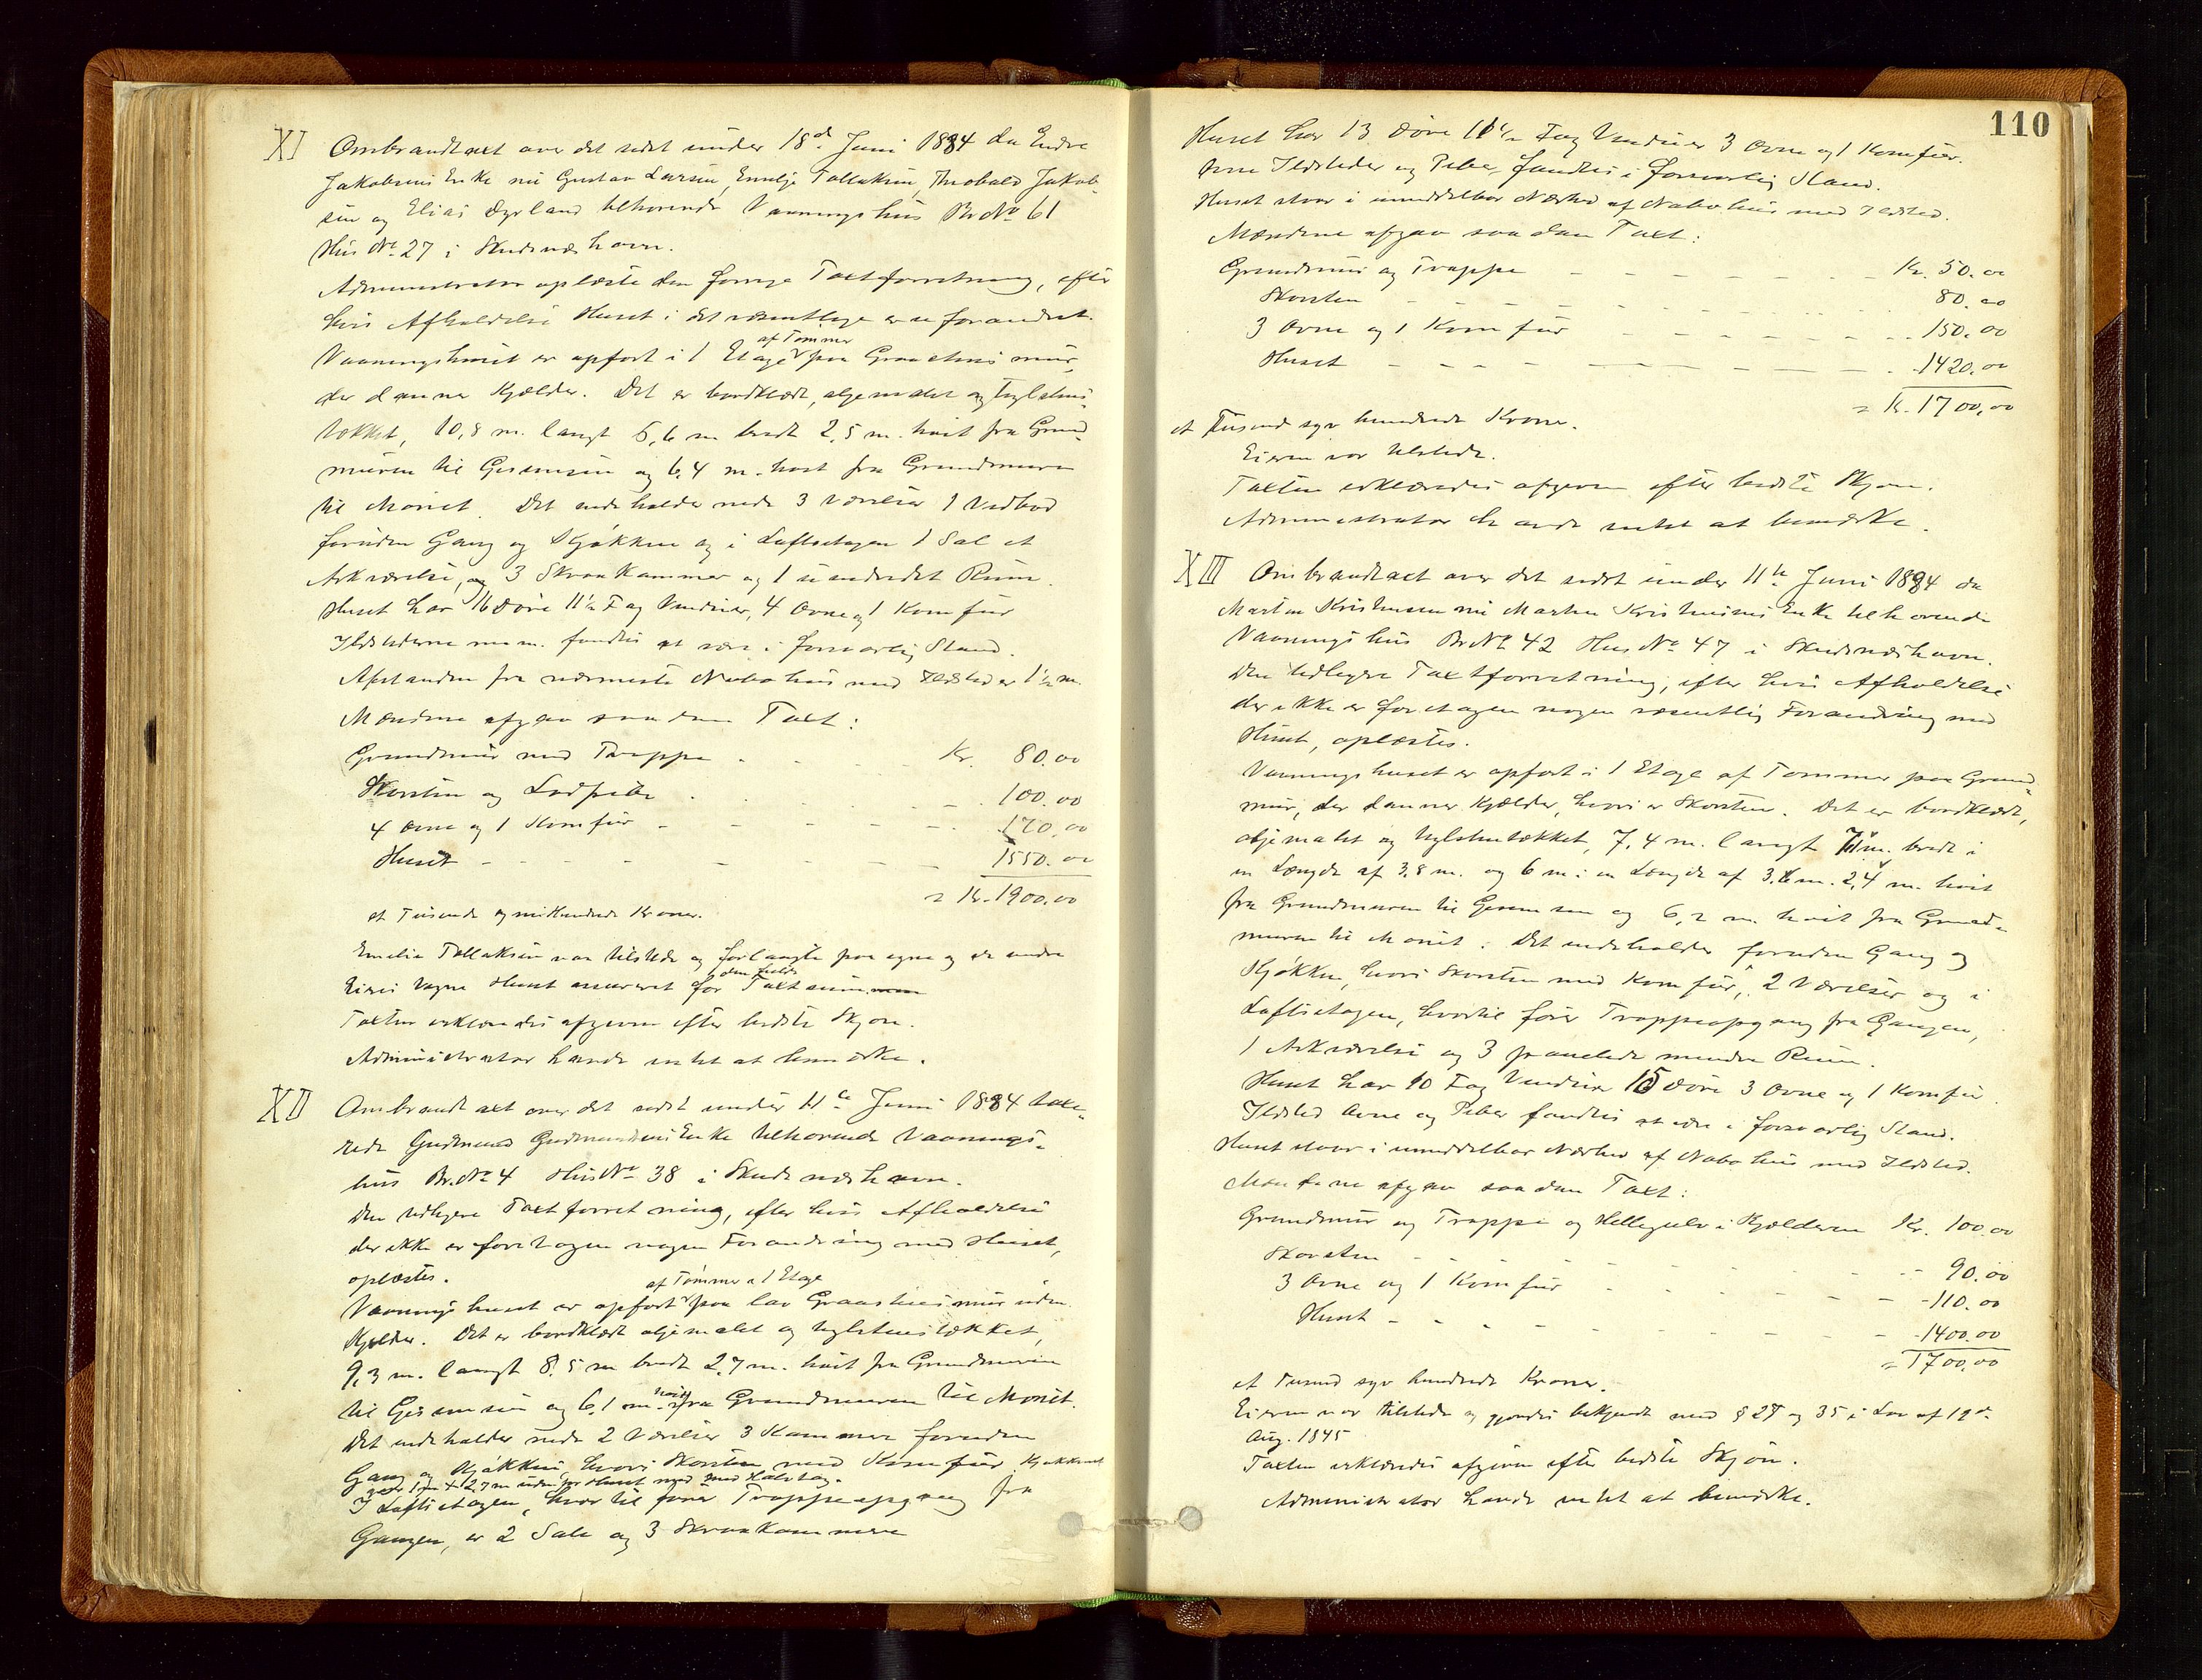 XI Ombrandtaxt over det sidst under 18de Juni 1884 da Endre
Jakobsens Enke nu Gustav Larsen, Emelje Tollaksen, Theobald Jakob
sen og Elias Dyrland tilhørende Vaaningshus Br No 61
Hus No 27 i Skudesnæshavn.
Administrator oplæste den forrige Taxtforretning, efter
hvis Afholdelse Huset i det væsentlige er uforandret.
af Tømmer
Vaaningshuset er opført i 1 Etage paa Graastensmur,
der danner Kjælder. Det er bordklædt, oljemalet og teglstens-
tækket, 10,8 m. langt 6,6 m bredt 2,5 m. høit fra Grund-
muren til Gesimsen og 6,4 m. høit fra Grundmuren
til Mønet. Det indeholder nede 3 Værelser 1 Vedbod
foruden Gang og Kjøkken og i Loftsetagen 1 Sal et
Arkværelse, og 3 Skraakammer og 1 uindredet Rum.
Huset har 16 Døre 11½ Fag Vinduer, 4 Ovne og 1 Komfur
Ildstederne m.m. fandtes at være i forsvarlig Stand.
Afstanden fra nærmeste Nabohus med Ildsted er 1½ m.
Mændene afgav saadan Taxt:
Grundmur med Trappe Kr. 80.00
Skorsten og Lodpibe 100.00
4 Ovne og 1 Komfur 170.00
Huset 1550.00
= Kr. 1900.00
et Tusinde og nihundrede Kroner.
Emelie Tollaksen var tilstede og forlangte paa egne og de andre
den fulde
Eieres Vegne Huset assureret for Taxtsum
Taxten erklæredes afgiven efter bedste Skjøn.
Administrator havde intet at bemærke.
XII Ombrandtaxt over det sidst under 11te Juni 1884 taxe-
rede Gudmund Gudmundsens Enke tilhørende Vaanings-
hus Br. No 4 Hus No 38 i Skudesnæshavn.
Den tidligere Taxtforretning, efter hvis Afholdelse
der ikke er foretagen nogen Forandring med Huset,
oplæstes.
af Tømmer i 1 Etage
Vaaningshuset er opført paa lav Graastensmur uden
Kjelder. Det er bordklædt oljemalet og teglstenstækket,
9,3 m. langt 8,5 m bredt 2,7 m. høit fra Grundmuren
høit
til Gesimsen og 6,1 m. fra Grundmuren til Mønet.
Det indeholder nede 2 Værelser 3 Kammer foruden
Gang og Kjøkken, hvori Skorsten med Komfur. Kjøkkenet
1 m × 2,7 m udenfor Huset med Halvtag.
I Loftsetagen, hvortil fører Trappeopgang fra
Gangen, er 2 Sale og 3 Skraakammere
110
Huset har 13 Døre 11½ Fag Vinduer 3 Ovne og 1 Komfur.
Ovne Ildsteder og Piber fandtes i forsvarlig Stand.
Huset staar i umiddelbar Nærhed af Nabohus med Ildsted.
Mændene afgav saadan Taxt:
Grundmur og Trappe Kr. 50.00
Skorsten 80.00
3 Ovne og 1 Komfur 150.00
Huset 1420.00
= Kr. 1700,00
et Tusind syv hundrede Kroner.
Eieren var tilstede.
Taxten erklæredes afgiven efter bedste Skjøn.
Administrator havde intet at bemærke.
XIII Ombrandtaxt over det sidst under 11te Juni 1884 da
Martin Kristensen nu Martin Kristensens Enke tilhørende
Vaaningshus Br No 42 Hus No 47 i Skudesnæshavn.
Den tidligere Taxtforretning, efter hvis Afholdelse
der ikke er foretagen nogen væsentlig Forandring med
Huset, oplæstes.
Vaaningshuset er opført i 1 Etage af Tømmer paa Grund-
mur, der danner Kjælder, hvori er Skorsten. Det er bordklædt,
oljemalet og teglstentækket, 7,4 m. langt m. bredt i
en Længde af 3,8 m. og 6 m i en Længde af 3,6 m. 2,4 m. høit
fra Grundmuren til Gesimsen og 6,2 m høit fra Grund-
muren til Mønet. Det indeholder foruden Gang og
Kjøkken, hvori Skorsten med Komfur, 2 Værelser og i
Loftsetagen, hvortil fører Trappeopgang fra Gangen,
1 Arkværelse og 3 panelede mindre Rum.
Huset har 10 Fag Vinduer 15 Døre 3 Ovne og 1 Komfur.
Ildsted Ovne og Piber fandtes at være i forsvarlig Stand.
Huset staar i umiddelbar Nærhed af Nabohus med Ildsted.
Mændene afgav saadan Taxt:
Grundmur og Trappe og Hellegulv i Kjælderen Kr. 100.00
Skorsten 90.00
3 Ovne og 1 Komfur 110.00
Huset 1400.00
= 1700,00
et Tusind syv hundrede Kroner.
Eieren var tilstede og gjordes bekjendt med § 27 og 35 i Lov af 19de
Aug. 1845
Taxten erklæredes afgiven efter bedste Skjøn.
Administrator havde intet at bemærke.